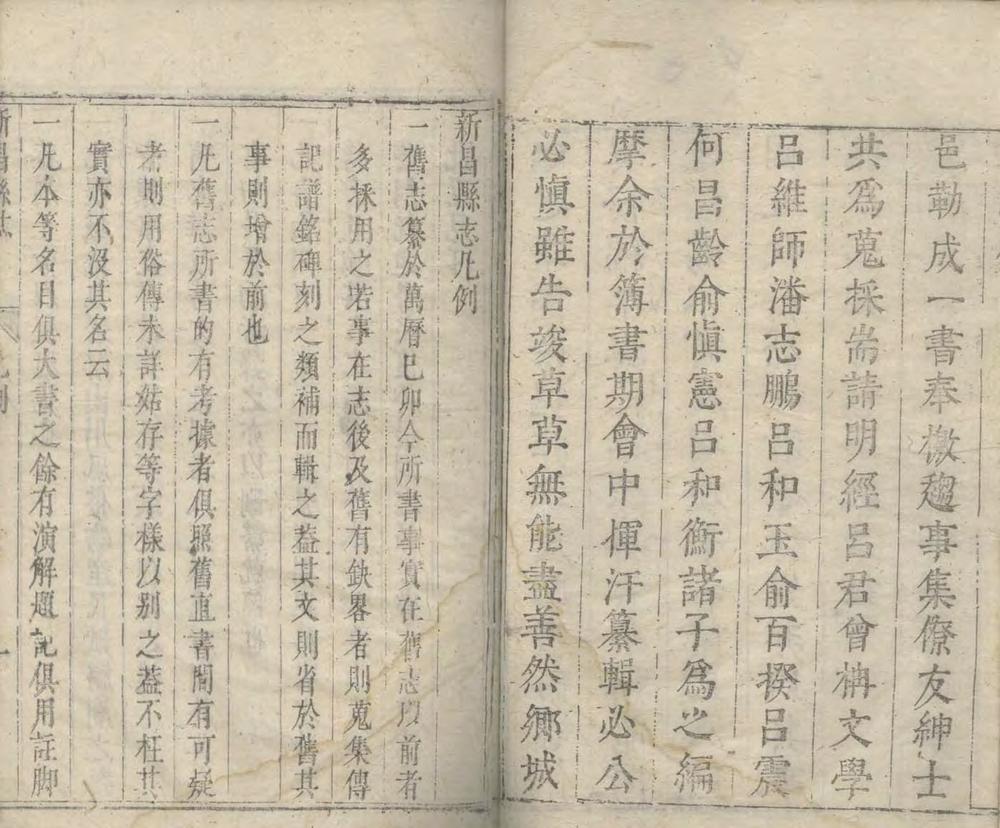 邑勒成一書奉檄趨事集僚友紳士
共爲蒐採耑請明經呂君曾柟文學
呂維師潘志鵬呂和玉俞百揆呂震
何昌齡俞愼憲呂和衡諸子爲之編
摩余於簿書期會中揮汗纂輯必公
必愼雖告竣草草無能盡善然鄉城
新昌縣志凡例
一舊志纂於萬曆巳卯今所書事實在舊志以前者
多採用之若事在志後及舊有缺畧者則蒐集傳
記譜銘碑刻之類補而輯之葢其文則省於舊其
事則增於前也
一凡舊志所書的有考據者俱照舊直書間有可疑
者則用俗傳未詳姑存等字樣以别之葢不枉其
實亦不没其名云
一凡本等名目俱大書之餘有演解題記俱用註脚
新昌縣志 凡例 一